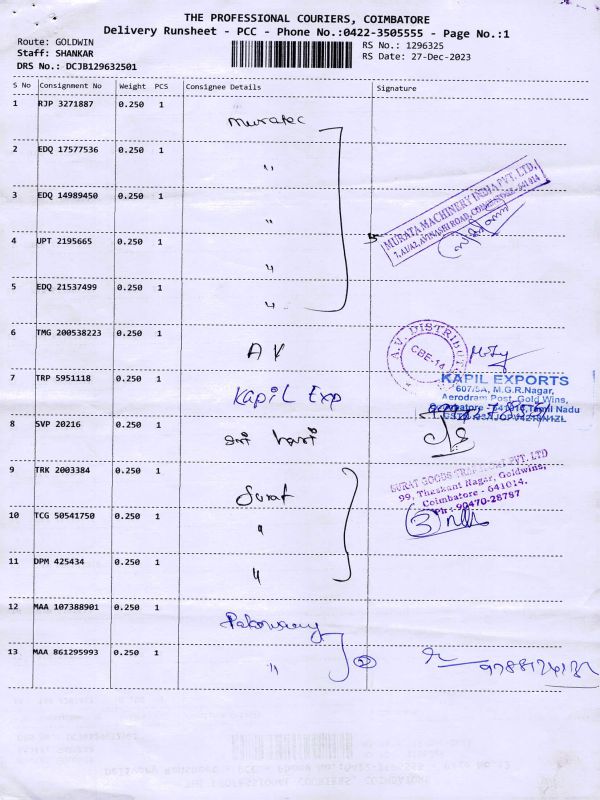 THE PROFESSIONAL COURIERS, COIMBATORE
Delivery Runsheet - PCC - Phone No.:0422-3505555 - Page No.:1
Route: GOLDWIN
Staff: SHANKAR
DRS No.: DCJB129632501
RS No.: 1296325
RS Date: 27-Dec-2023
S No Consignment No Weight PCS Consignee Details Signature
1 RJP 3271887 0.250 1 Muratec
2 EDQ 17577536 0.250 1 "
3 EDQ 14989450 0.250 1 "
4 UPT 2195665 0.250 1 "
5 EDQ 21537499 0.250 1 "
MURATA MACHINERY INDIA PVT. LTD.
AVINASHI ROAD, COIMBATORE - 641 014
6 TMG 200538223 0.250 1 AV
A.V. DISTRIBUT
CBE-14
7 TRP 5951118 0.250 1 Kapil Exp
KAPIL EXPORTS
607/5A, M.G.R.Nagar,
Aerodram Post, Gold Wins,
Coimbatore - 641014, Tamil Nadu
8 SVP 20216 0.250 1 Sri hari
9 TRK 2003384 0.250 1 Surat
SURAT GOODS PVT. LTD
99, Theekani Nagar, Goldwins,
Coimbatore - 641014.
Ph: 90470-28787
10 TCG 50541750 0.250 1 "
3
11 DPM 425434 0.250 1 "
12 MAA 107388901 0.250 1
13 MAA 861295993 0.250 1 "
2